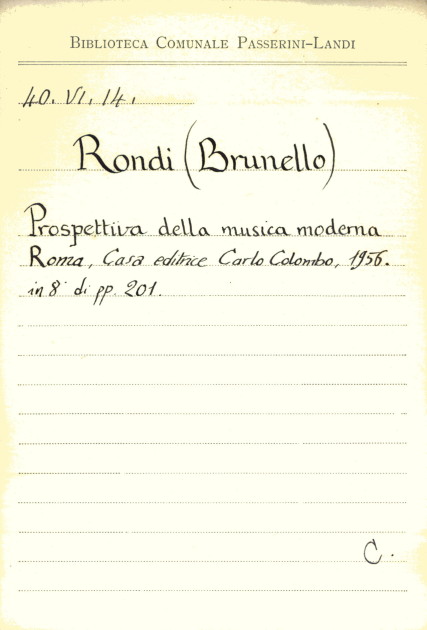 BIBLIOTECA COMUNALE PASSERINI-LANDI
40. VI. 14.
Rondi (Brunello)
Prospettiva della musica moderna
Roma, Casa editrice Carlo Colombo, 1956.
in 8° di pp. 201.
C.